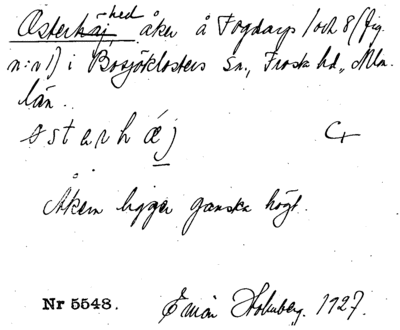 Österhäj, hed åker å Fogdarp 1 och 8 (fig.
n:o 1) i Bosjöklosters Sn., Frosta hd., Mlm.
län.
østarhǽj
Åkern ligger ganska högt.
Nr 5548. Emin Holmberg. 1927.